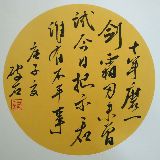 十年磨一
劍霜刃未曾
試今日把示君
誰有不平事
庚子夏